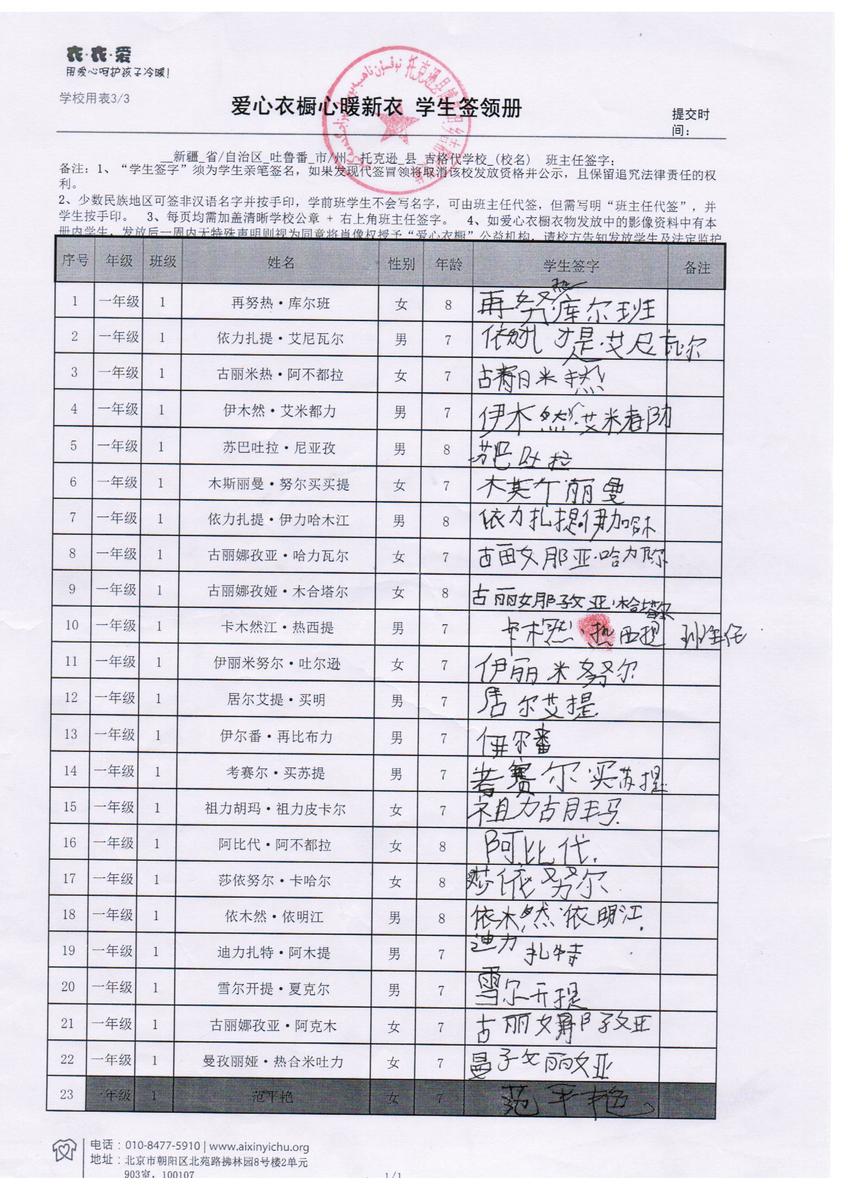 衣·衣·爱
用爱心呵护孩子冷暖!
学校用表3/3
爱心衣橱心暖新衣 学生签领册
提交时间:
__新疆_省/自治区_吐鲁番_市/州__托克逊_县_吉格代学校_(校名) 班主任签字:
备注:1、“学生签字”须为学生亲笔签名,如果发现代签冒领将取消该校发放资格并公示,且保留追究法律责任的权利。
2、少数民族地区可签非汉语名字并按手印,学前班学生不会写名字,可由班主任代签,但需写明“班主任代签”,并
学生按手印。 3、每页均需加盖清晰学校公章 + 右上角班主任签字。 4、如爱心衣橱衣物发放中的影像资料中有本
册内学生,发放后一周内无特殊声明则视为同意将肖像权授予“爱心衣橱”公益机构,请校方告知发放学生及法定监护
序号 年级 班级 姓名 性别 年龄 学生签字 备注
1 一年级 1 再努热·库尔班 女 8 再努热库尔班
2 一年级 1 依力扎提·艾尼瓦尔 男 7 扎提·艾尼瓦尔
3 一年级 1 古丽米热·阿不都拉 女 7 古丽米热
4 一年级 1 伊木然·艾米都力 男 7 伊木然艾米
5 一年级 1 苏巴吐拉·尼亚孜 男 8 苏巴吐拉
6 一年级 1 木斯丽曼·努尔买买提 女 7 木丽曼
7 一年级 1 依力扎提·伊力哈木江 男 8 依力扎提伊力哈木
8 一年级 1 古丽娜孜亚·哈力瓦尔 女 7 古 那亚·哈力
9 一年级 1 古丽娜孜娅·木合塔尔 女 8 古丽娜孜亚·木合塔尔
10 一年级 1 卡木然江·热西提 男 7 卡木然·热西提 班主任
11 一年级 1 伊丽米努尔·吐尔逊 女 7 伊丽米努尔
12 一年级 1 居尔艾提·买明 男 7 居尔艾提
13 一年级 1 伊尔番·再比布力 男 7 伊尔番
14 一年级 1 考赛尔·买苏提 男 7 考赛尔·买苏提
15 一年级 1 祖力胡玛·祖力皮卡尔 女 7 祖力胡玛
16 一年级 1 阿比代·阿不都拉 女 8 阿比代.
17 一年级 1 莎依努尔·卡哈尔 女 8 莎依努尔
18 一年级 1 依木然·依明江 男 8 依木然·依明江.
19 一年级 1 迪力扎特·阿木提 男 7 迪力扎特
20 一年级 1 雪尔开提·夏克尔 男 7 雪尔开提
21 一年级 1 古丽娜孜亚·阿克木 女 7 古丽娜孜亚
22 一年级 1 曼孜丽娅·热合米吐力 女 7 曼子丽亚
23 一年级 1 范平艳 女 7 范平艳
电话:010-8477-5910 | www.aixinyichu.org
地址:北京市朝阳区北苑路拂林园8号楼2单元
903室,100107
1/1